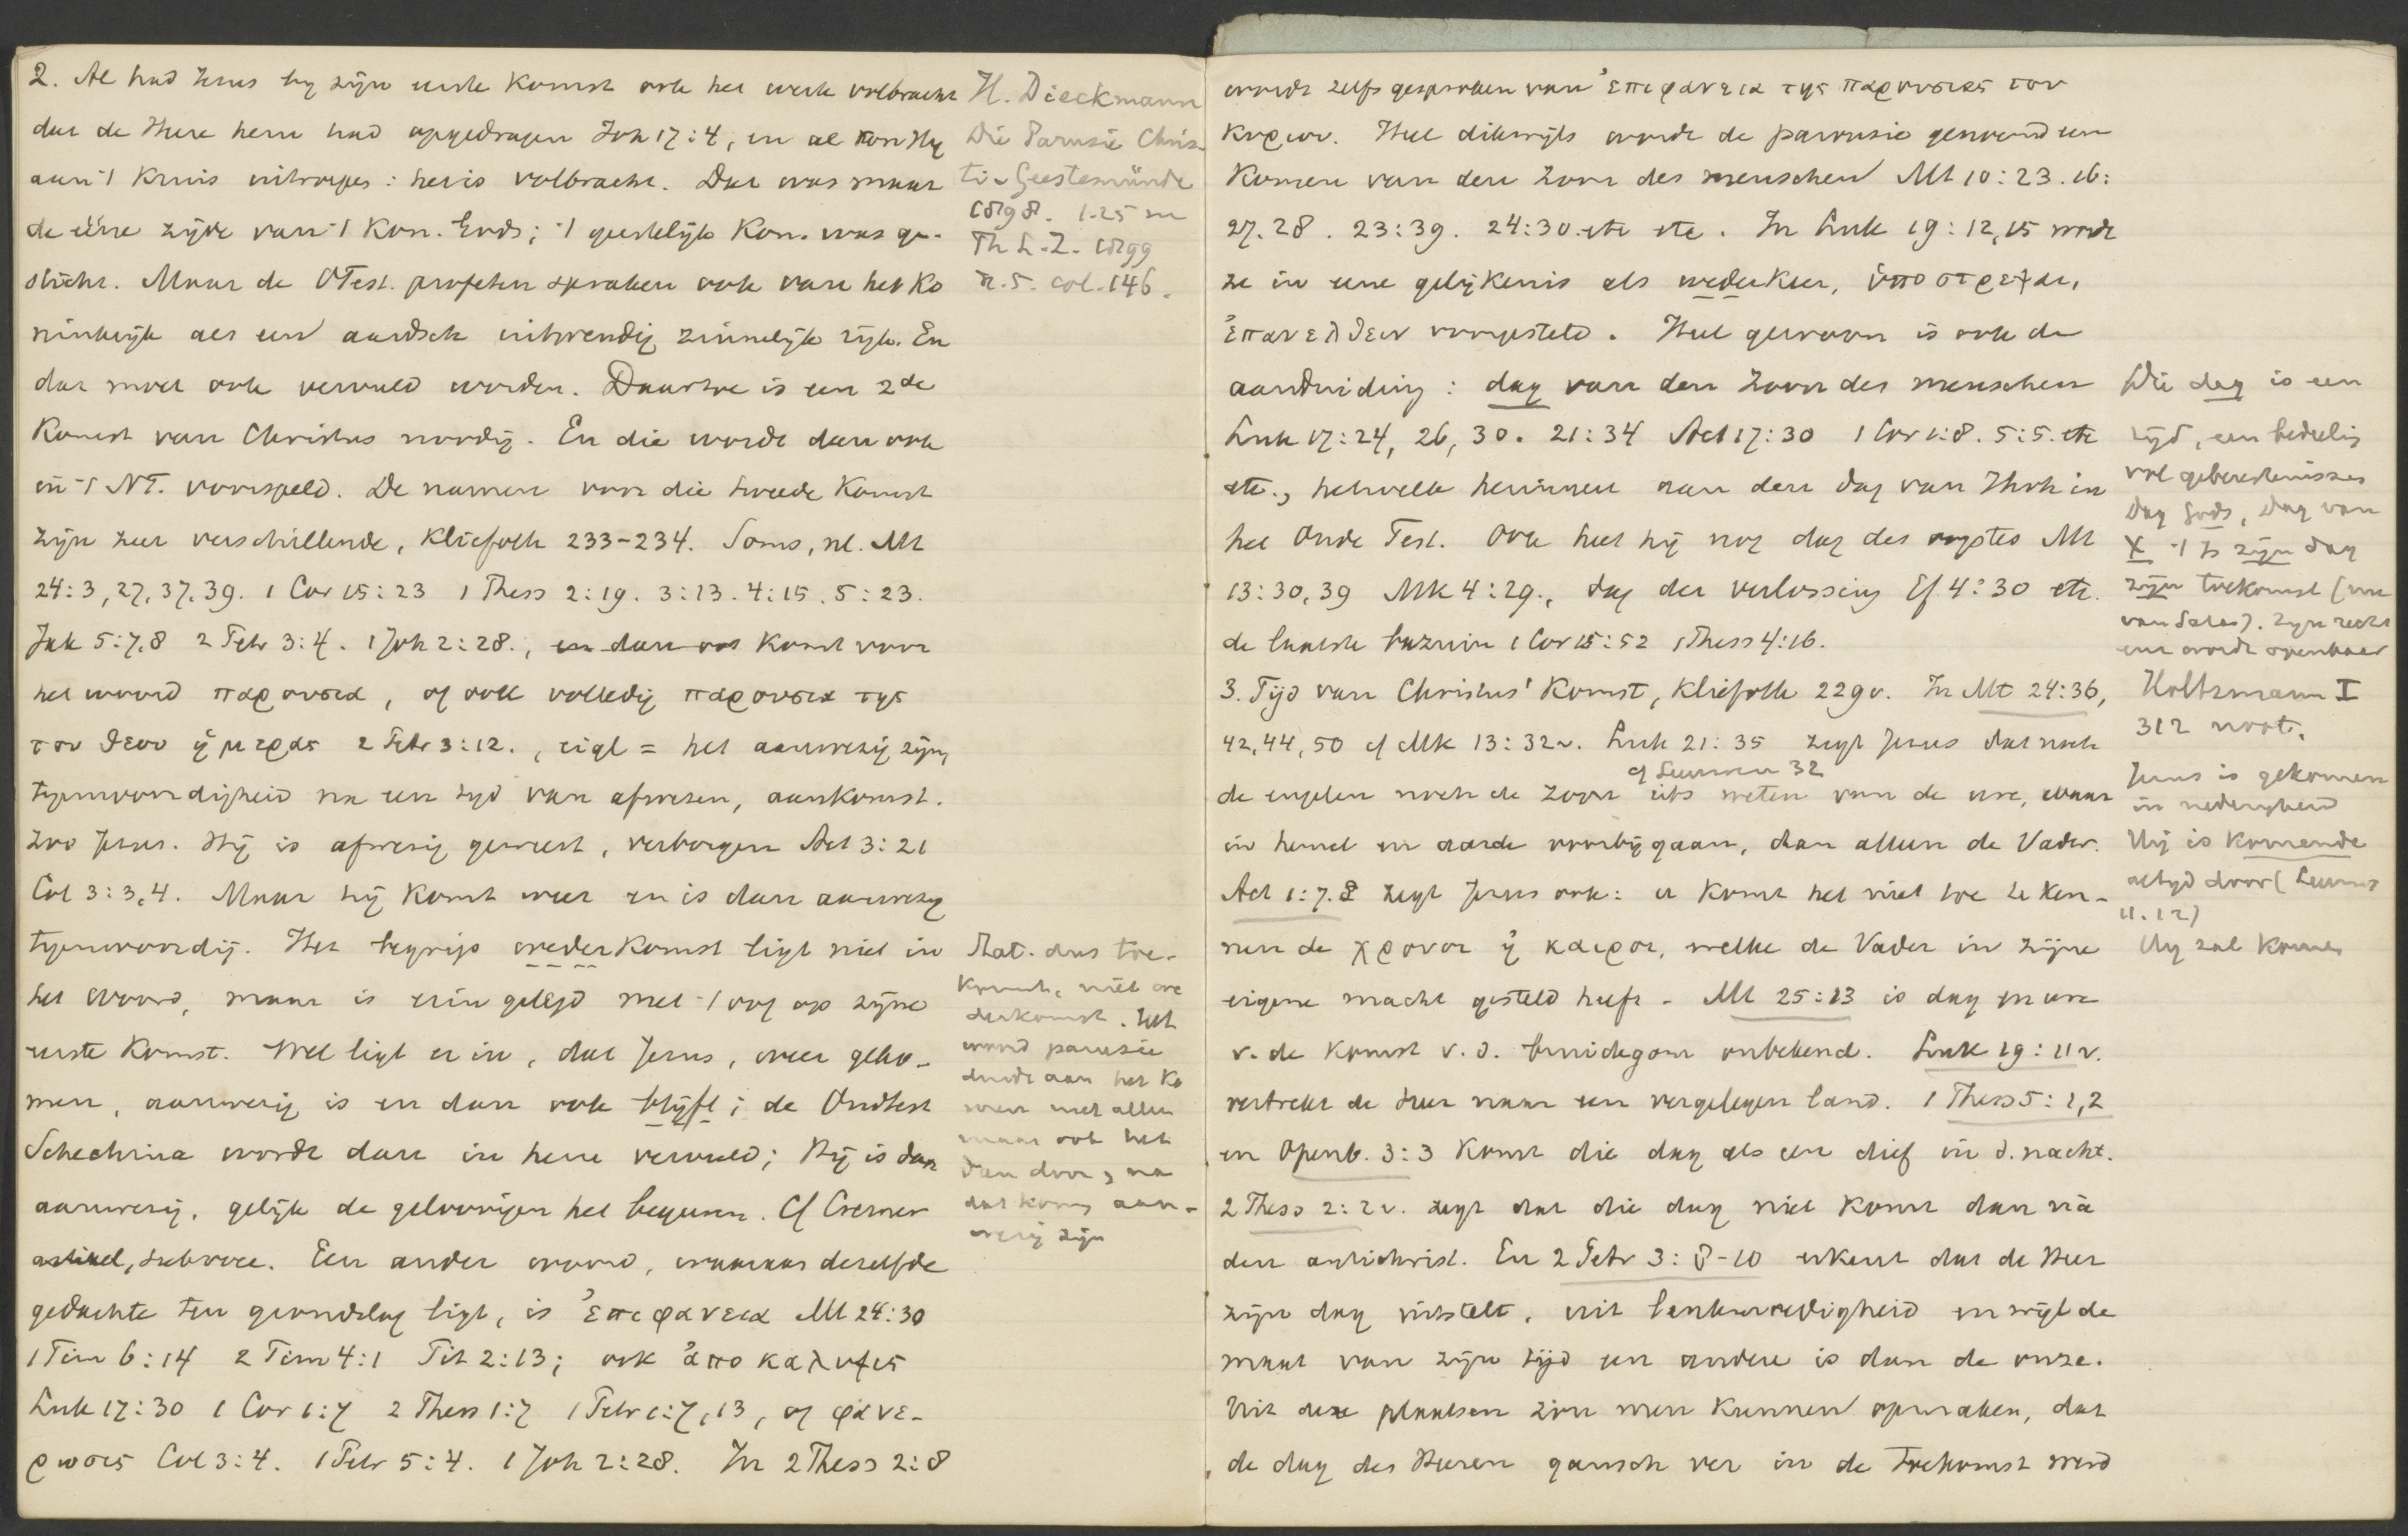 2. Al had Jezus by zijn eerste komst ook het werk volbracht
dat de Heere hem had opgedragen Joh 17:4, en al kon Hy
aan 't kruis uitroepen: het is volbracht. Dat was maar
de ééne zijde van 't Kon. Gods; 't geestelijk Kon. was ge-
sticht. Maar de OTest. profeten spraken ook van het Ko
ninkrijk als een aardsch uitwendig zinnelijk rijk. En
dat moet ook vervuld worden. Daartoe is een 2de
komst van Christus noodig. En die wordt dan ook
in 't NT. voorspeld. De namen voor die tweede komst
zijn zeer verschillende, Kliefoth 233-234. Soms, nl. Mt
24:3, 27, 37, 39. 1 Cor 15:23 1 Thess 2:19. 3:13. 4:15. 5:23.
Jak 5:7,8 2 Petr 3:4. 1 Joh 2:28., en dan ook komt voor
het woord παρουσια, of ook volledig παρουσια της
του θεου ἡμερας 2 Petr 3:12., eigl = het aanwezig zijn,
tegenwoordigheid na een tyd van afwezen, aankomst.
Zoo Jezus. Hij is afwezig geweest, verborgen Act 3:21
Col 3:3,4. Maar hij komt weer en is dan aanwezig
tegenwoordig. Het begrip wederkomst ligt niet in
het woord, maar is erin gelegd met 't oog op zijne
eerste komst. Wel ligt er in, dat Jezus, weer geko-
men, aanwezig is en dan ook blijft; de Oudtest
Schechina wordt dan in hem vervuld; Hij is dan
aanwezig, gelijk de geloovigen het begeeren. Cf Cremer
artikel, sub voce. Een ander woord, waaraan dezelfde
gedachte ten grondslag ligt, is ἐπιφανεια Mt 24:30
1 Tim 6:14 2 Tim 4:1 Tit 2:13; ook ἀποκαλυψις
Luk 17:30 1 Cor 1:7 2 Thess 1:7 1 Petr 1:7,13, of φανε-
ρωσις Col 3:4. 1 Petr 5:4. 1 Joh 2:28. In 2 Thess 2:8
H. Dieckmann
Die Parusie Chris-
ti - Geestemünde
1898. 1.25 m
Th L.Z. 1899
n. 5. col. 146.
Mat. dus toe-
komst, niet we
derkomst. Het
woord parusie
duidt aan het ko
men niet alleen
maar ook het
dan door, na
dat komen aan-
wezig zijn
wordt zelfs gesproken van ἐπιφανεια της παρουσιας του
κυριου. Heel dikwijls wordt de parousie genoemd een
komen van den Zoon des menschen Mt 10:23. 16:
27. 28. 23:39. 24:30. etc etc. In Luk 19:12,15 wordt
ze in eene gelijkenis als wederkeer, ὑποστρεψαι,
ἐπανελθειν voorgesteld. Heel gewoon is ook de
aanduiding: dag van den Zoon des menschen
Luk 17:24, 26, 30. 21:34 Act 17:30 1 Cor 1:8. 5:5. etc
etc., hetwelk herinnert aan den dag van Jhvh in
het Oude Test. Ook heet hij nog dag des oogstes Mt
13:30,39 Mk 4:29., dag der verlossing Ef 4:30 etc.
de laatste bazuin 1 Cor 15:52 1 Thess 4:16.
3. Tijd van Christus' komst, Kliefoth 229v. In Mt 24:36,
42,44,50 cf Mk 13:32v. Luk 21:35 zegt Jezus dat noch
cf Leeuwen 32
de engelen noch de Zoon iets weten van de ure, waar
in hemel en aarde voorbijgaan, dan alleen de Vader.
Act 1:7.8 zegt Jezus ook: u komt het niet toe te ken-
nen de χρονοι ἠ καιροι, welke de Vader in zijne
eigene macht gesteld heeft. Mt 25:13 is dag en ure
v. de komst v. d. bruidegom onbekend. Luk 19:11v.
vertrekt de heer naar een vergelegen land. 1 Thess 5:1,2
en Openb. 3:3 komt die dag als een dief in d. nacht.
2 Thess 2:2v. zegt dat die dag niet komt dan ná
den antichrist. En 2 Petr 3:8-10 erkent dat de Heer
zijn dag uitstelt, uit lankmoedigheid en wijl de
maat van zijn tijd een andere is dan de onze.
Uit deze plaatsen zou men kunnen opmaken, dat
de dag des Heeren gansch ver in de toekomst werd
Die dag is een
tijd, een bedeeling
vol gebeurtenissen
Dag Gods, Dag van
X 't is zijn dag
zijn toekomst (nu
van Satan). Zijn recht
eer wordt openbaar
Holtzmann I
312 noot.
Jezus is gekomen
in nederigheid
Hij is komende
altyd door (Leeuwen
11. 12)
Hij zal komen